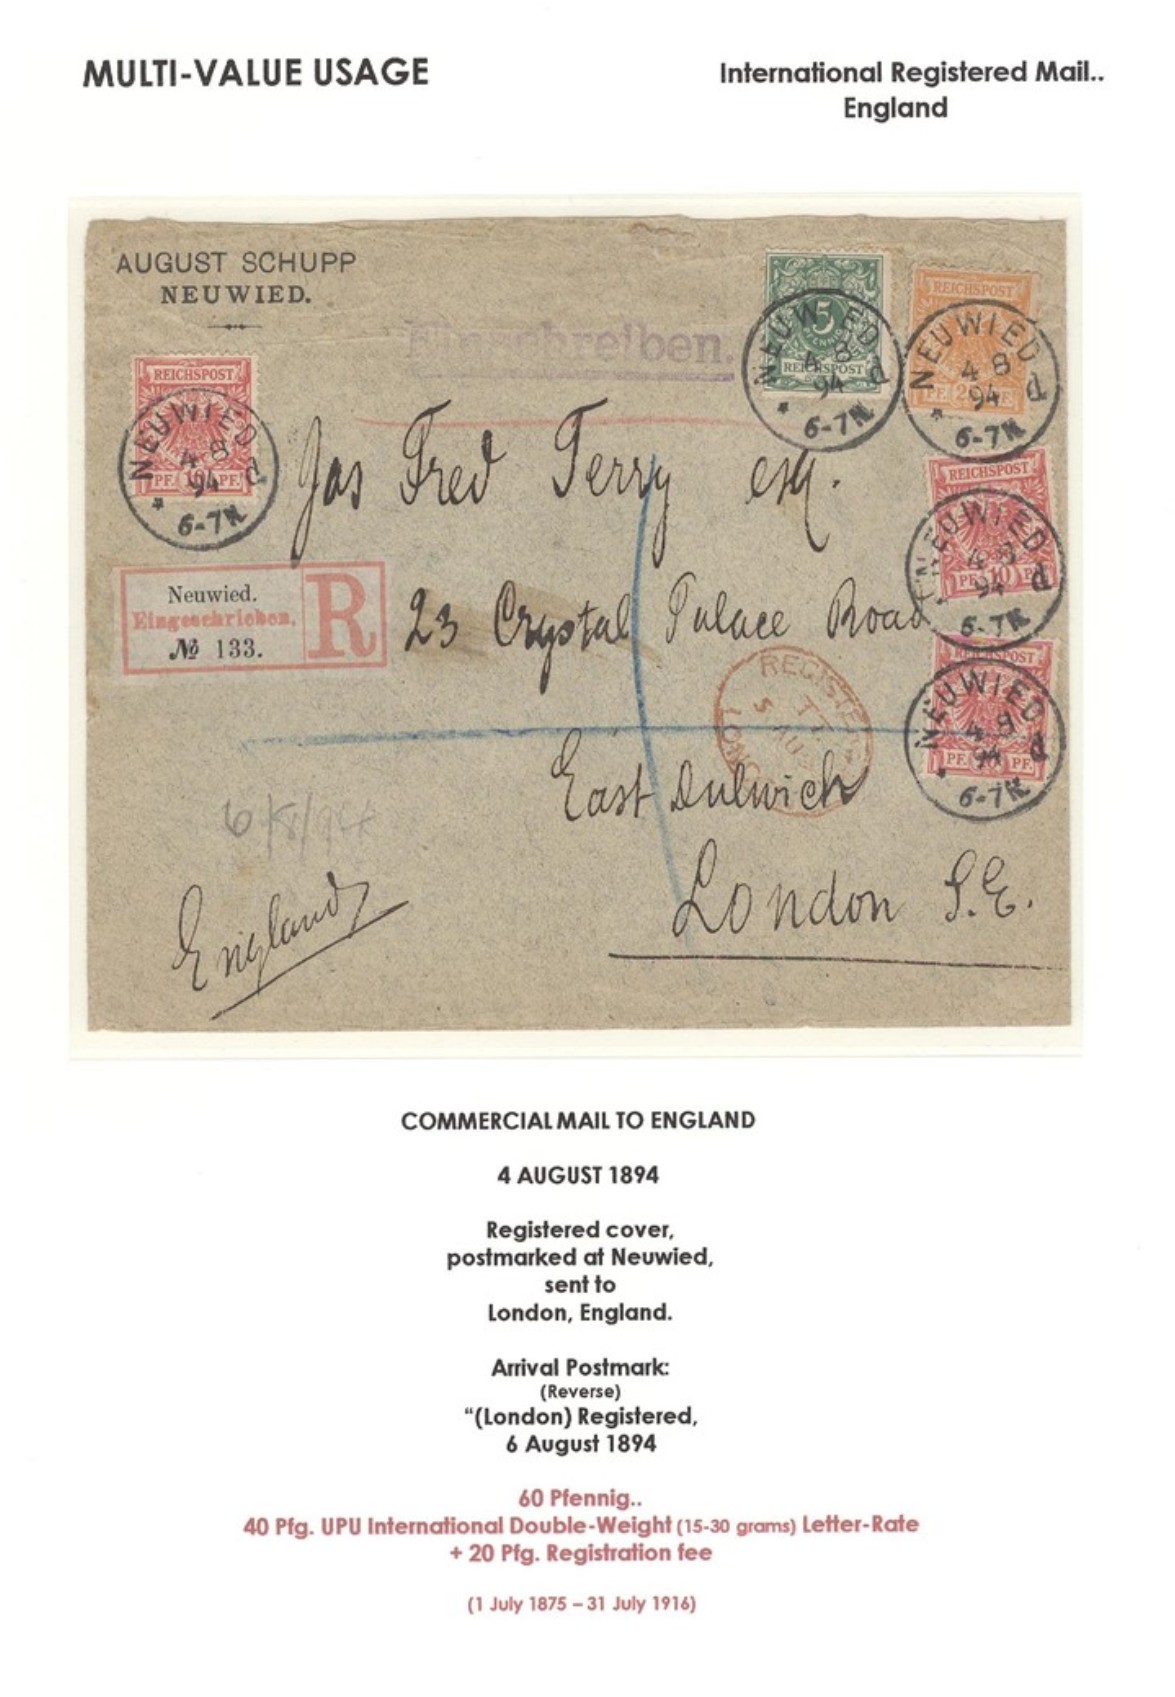 MULTI-VALUE USAGE
International Registered Mail..
England
AUGUST SCHUPP
NEUWIED.
Einschreiben.
5
REICHSPOST
NEUWIED
4 8
94
6-7N
REICHSPOST
PF. 25 PF.
NEUWIED
4 8
94
6-7N
REICHSPOST
PF. 10 PF.
NEUWIED
4 8
94
6-7N
Jas Fred Terry esq.
REICHSPOST
PF. 10 PF.
NEUWIED
4 8
94
6-7N
Neuwied.
Eingeschrieben.
№ 133.
R
23 Crystal Palace Road
REICHSPOST
PF. PF.
NEUWIED
4 8
94
6-7N
REGISTE
LONDO
5 AU
East Dulwich
6/8/94
London S.E.
England
COMMERCIAL MAIL TO ENGLAND
4 AUGUST 1894
Registered cover,
postmarked at Neuwied,
sent to
London, England.
Arrival Postmark:
(Reverse)
“(London) Registered,
6 August 1894
60 Pfennig..
40 Pfg. UPU International Double-Weight (15-30 grams) Letter-Rate
+ 20 Pfg. Registration fee
(1 July 1875 – 31 July 1916)